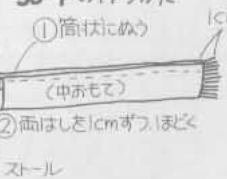 ①筒状にぬう
1c
(中おもて)
②両はしを1cmずつ、ほどく
ストール